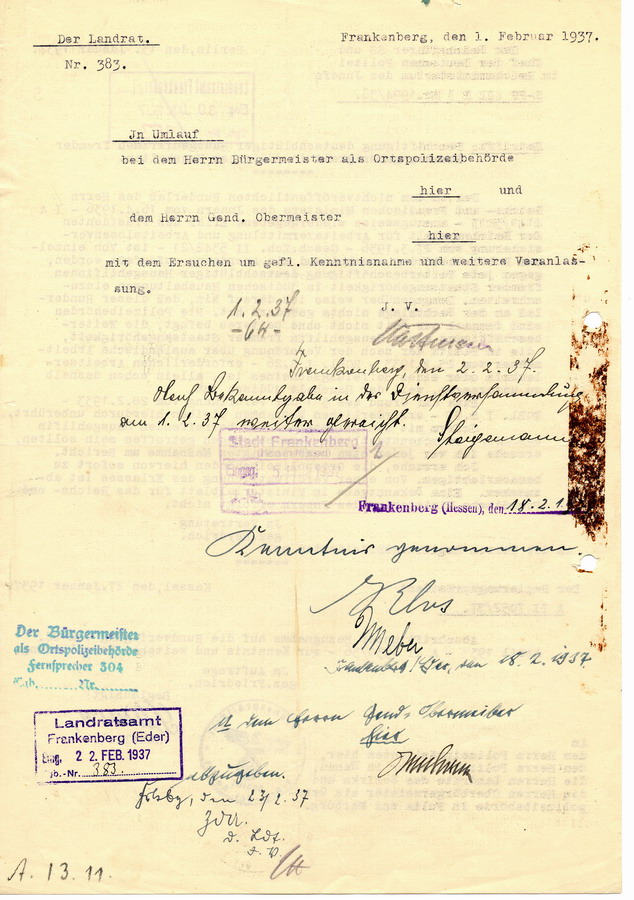 Der Landrat.
Frankenberg, den 1. Februar 1937.
Nr. 383.
Jn Umlauf
bei dem Herrn Bürgermeister als Ortspolizeibehörde
hier und
dem Herrn Gend. Obermeister
hier
mit dem Ersuchen um gefl. Kenntnisnahme und weitere Veranlas-
sung.
J. V.
1.2.37
Frankenberg, den 2.2.37.
Nach Bekanntgabe in der Dienstversammlung
am 1.2.37 weiter gereicht.
Stadt Frankenberg
Eingg.
Frankenberg (Hessen), den 18.2.1
Kenntnis genommen.
Weber
Frankenberg/Eder, den 18.2.1937
Der Bürgermeister
als Ortspolizeibehörde
Fernsprecher 304
Tgb. Nr.
U. dem Herrn Gend. Obermeister
hier
Landratsamt
Frankenberg (Eder)
Eing. 22. FEB. 1937
Tgb.-Nr. 383
abzugeben.
Frkbg, den 23/2.37
D. Ldt.
J. V.
A. 13.11.